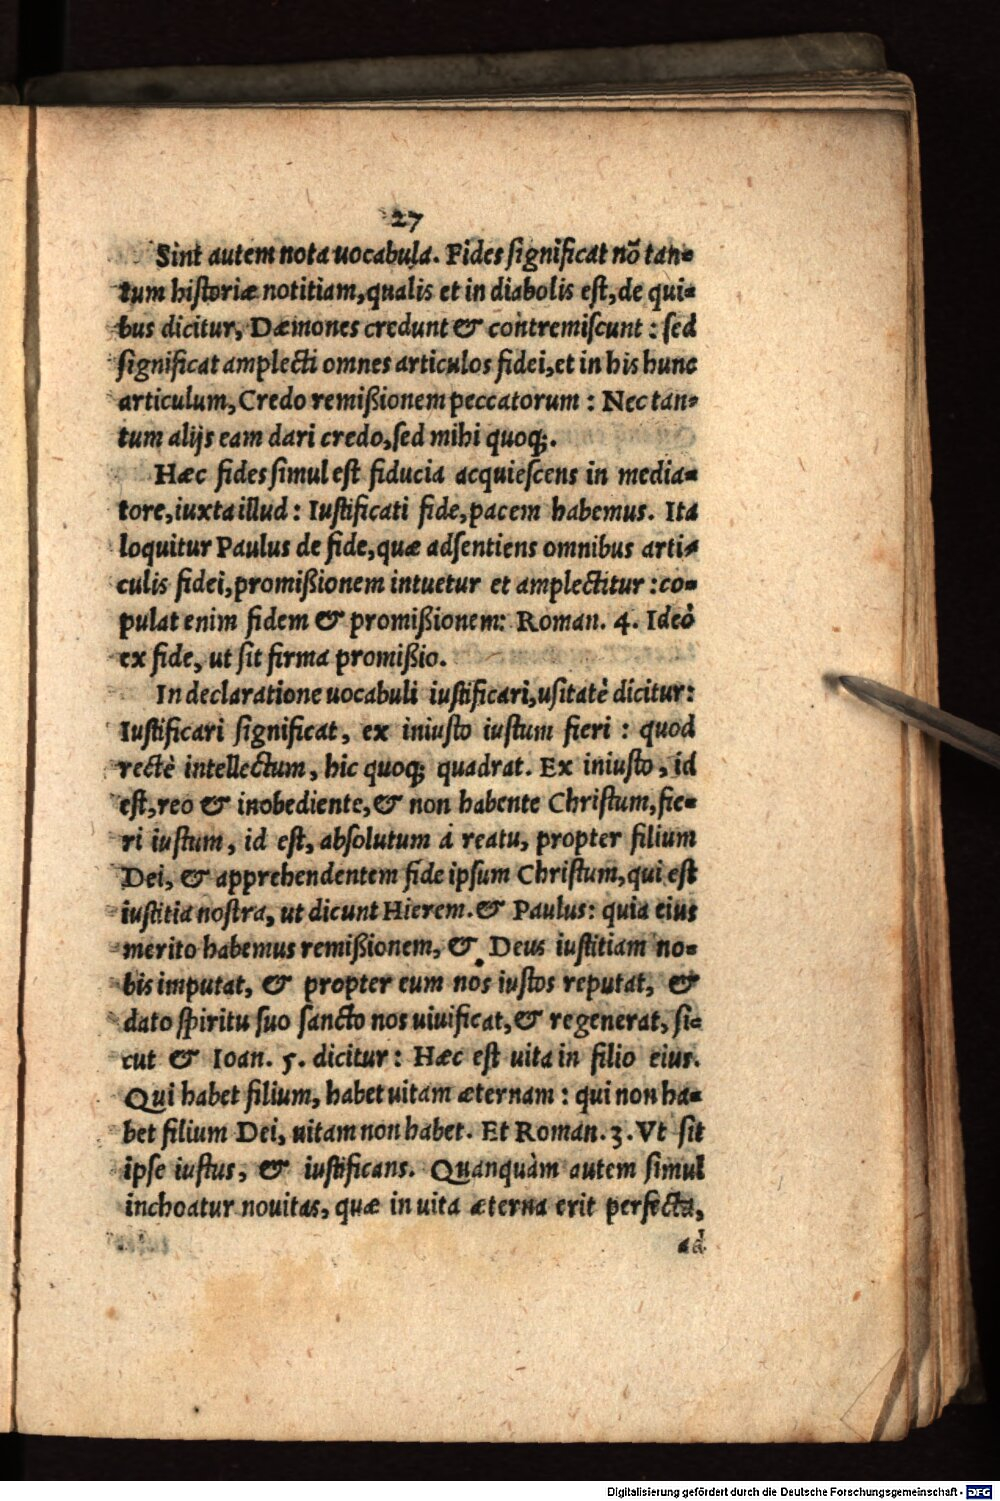 27
Sint autem nota uocabula. Fides significat nõ tan-
tum historiæ notitiam, qualis et in diabolis est, de qui-
bus dicitur, Dæmones credunt & contremiscunt : sed
significat amplecti omnes articulos fidei, et in his hunc
articulum, Credo remißionem peccatorum : Nec tan-
tum alijs eam dari credo, sed mihi quoq;.
Hæc fides simul est fiducia acquiescens in media-
tore, iuxta illud : Iustificati fide, pacem habemus. Ita
loquitur Paulus de fide, quæ adsentiens omnibus arti-
culis fidei, promißionem intuetur et amplectitur : co-
pulat enim fidem & promißionem: Roman. 4. Ideò
ex fide, ut sit firma promißio.
In declaratione uocabuli iustificari, usitatè dicitur:
Iustificari significat, ex iniusto iustum fieri : quod
rectè intellectum, hic quoq; quadrat. Ex iniusto, id
est, reo & inobediente, & non habente Christum, fie-
ri iustum, id est, absolutum à reatu, propter filium
Dei, & apprehendentem fide ipsum Christum, qui est
iustitia nostra, ut dicunt Hierem. & Paulus: quia eius
merito habemus remißionem, & Deus iustitiam no-
bis imputat, & propter eum nos iustos reputat, &
dato spiritu suo sancto nos uiuificat, & regenerat, si-
cut & Ioan. 5. dicitur : Hæc est uita in filio eius.
Qui habet filium, habet uitam æternam : qui non ha-
bet filium Dei, uitam non habet. Et Roman. 3. Vt sit
ipse iustus, & iustificans. Quanquàm autem simul
inchoatur nouitas, quæ in uita æterna erit perfecta,
ad
Digitalisierung gefördert durch die Deutsche Forschungsgemeinschaft - DFG